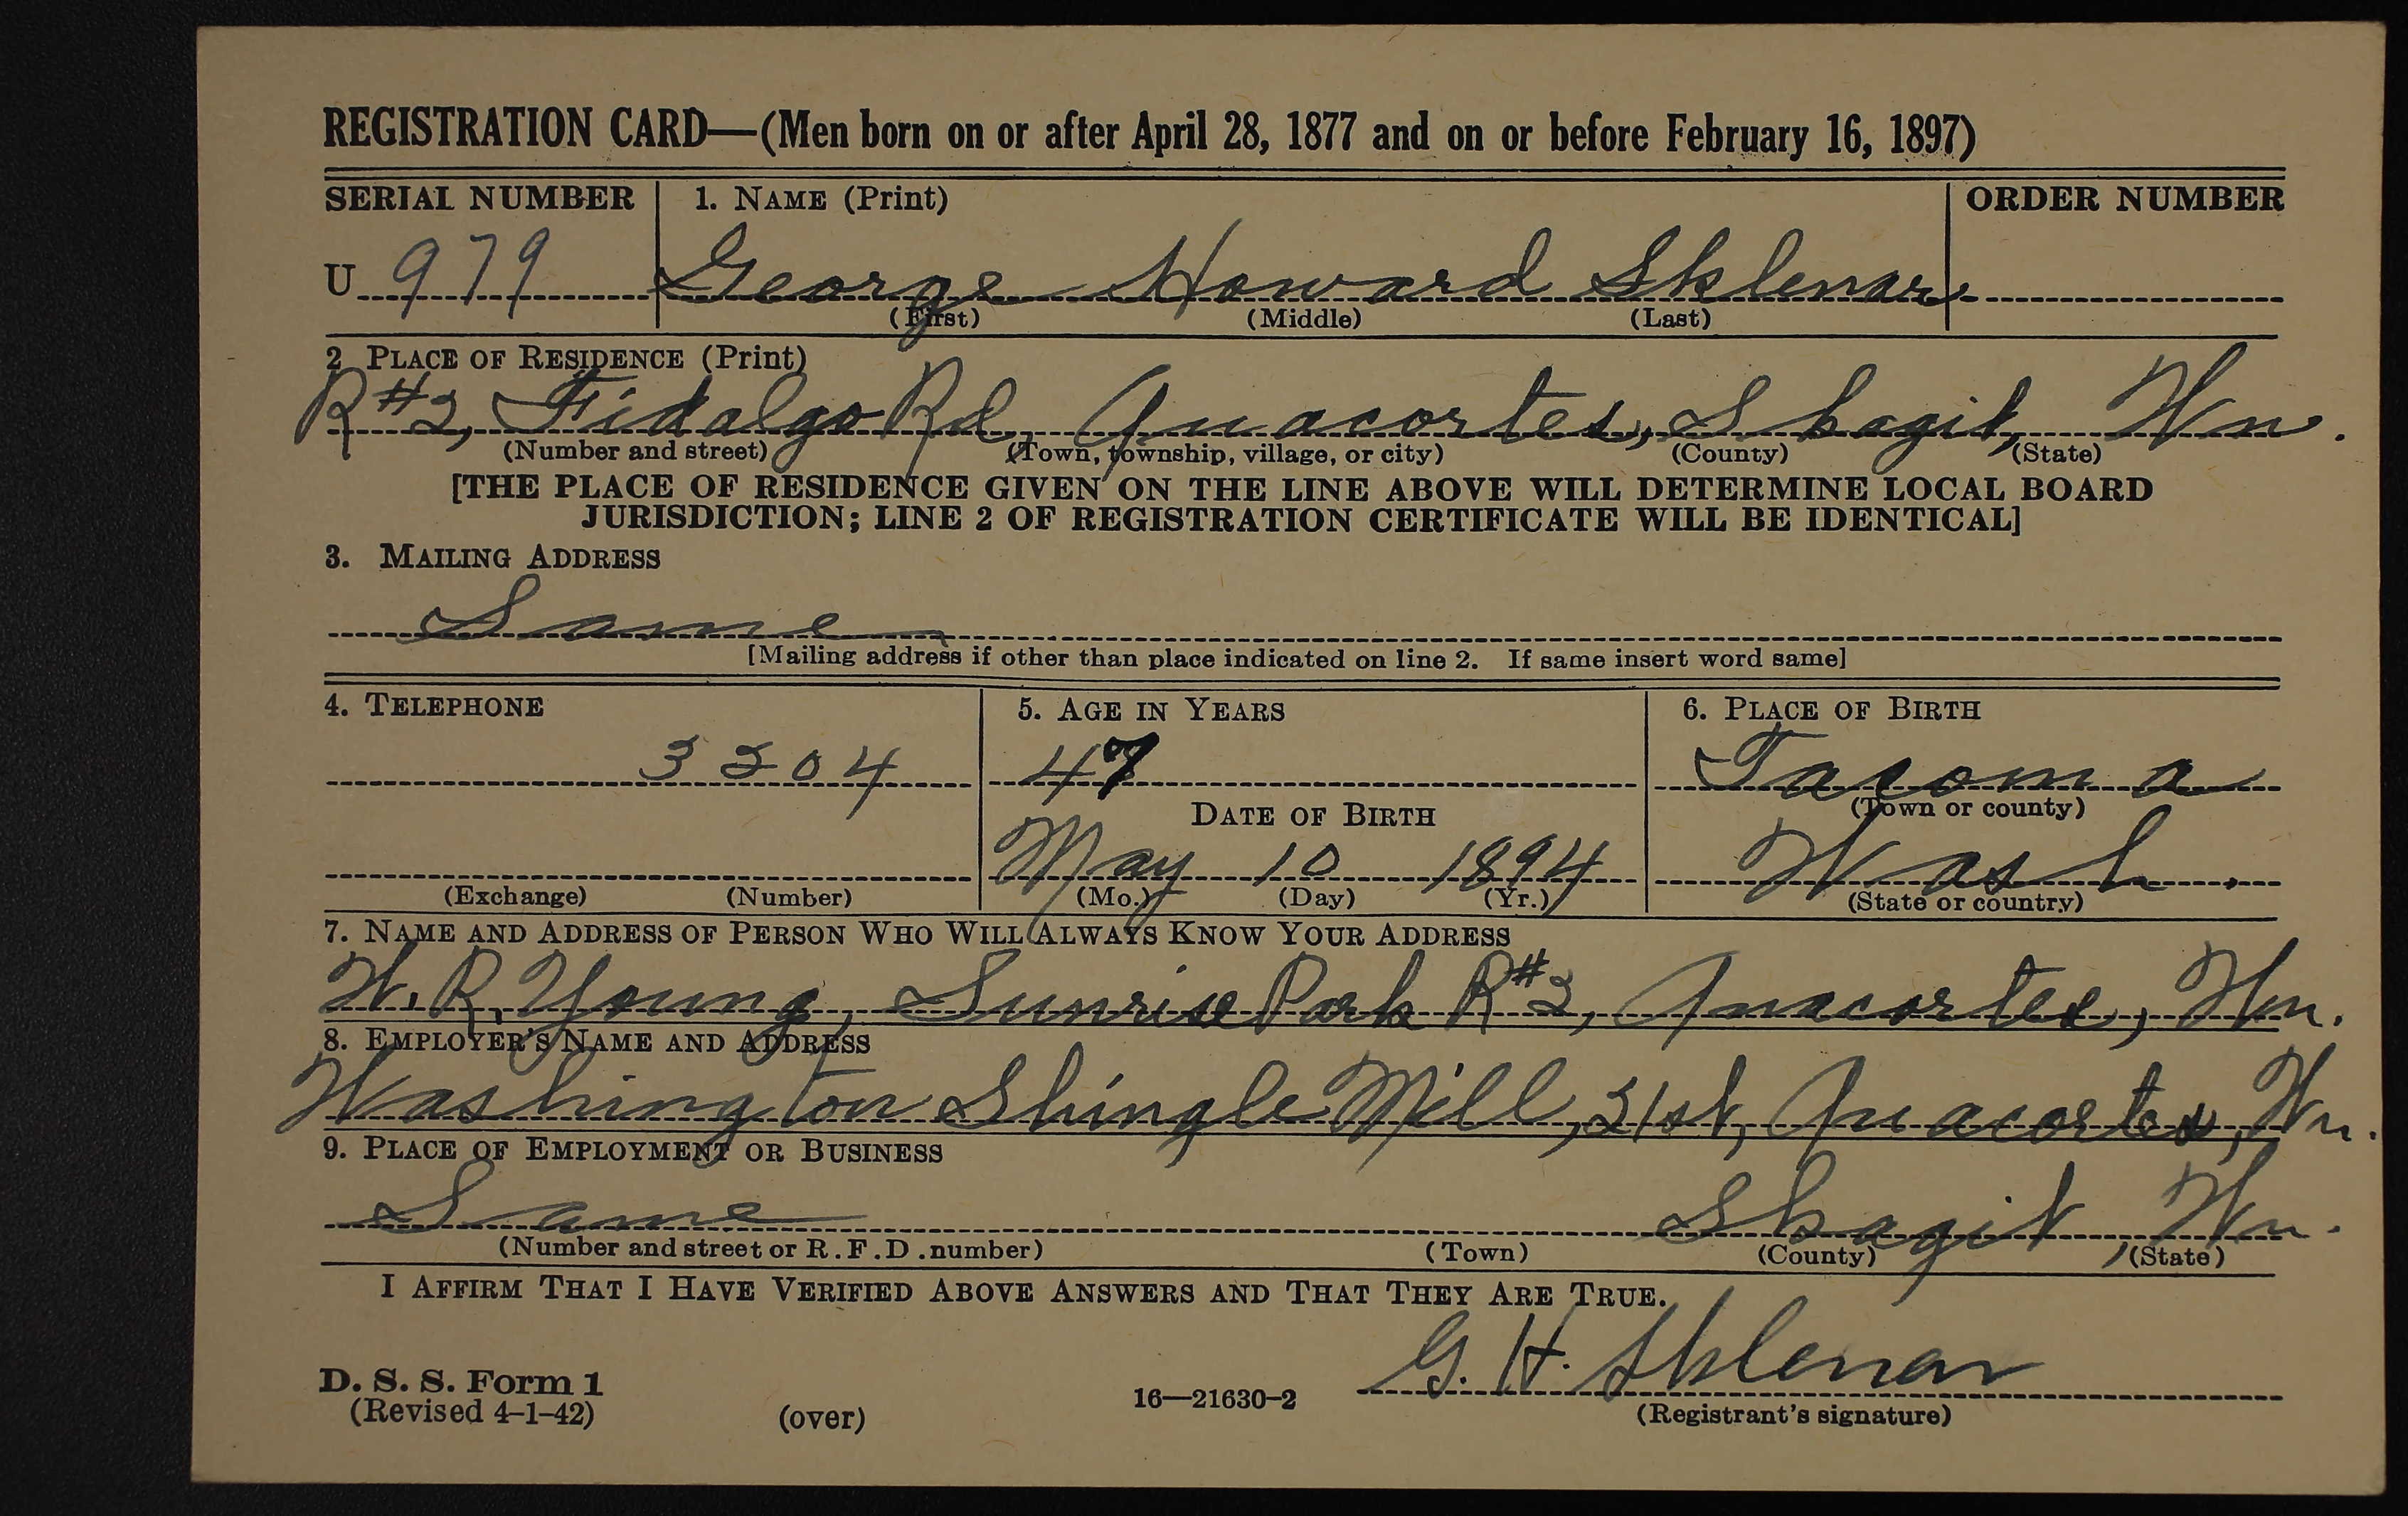 REGISTRATION CARD—(Men born on or after April 28, 1877 and on or before February 16, 1897)
SERIAL NUMBER 1. NAME (Print) ORDER NUMBER
U 979 George Howard Sklenar
(First) (Middle) (Last)
2. PLACE OF RESIDENCE (Print)
R#2, Fidalgo Rd, Anacortes, Skagit, Wn.
(Number and street) (Town, township, village, or city) (County) (State)
[THE PLACE OF RESIDENCE GIVEN ON THE LINE ABOVE WILL DETERMINE LOCAL BOARD
JURISDICTION; LINE 2 OF REGISTRATION CERTIFICATE WILL BE IDENTICAL]
3. MAILING ADDRESS
Same
[Mailing address if other than place indicated on line 2. If same insert word same]
4. TELEPHONE 5. AGE IN YEARS 6. PLACE OF BIRTH
3204 47 Tacoma
DATE OF BIRTH (Town or county)
May 10 1894 Wash.
(Exchange) (Number) (Mo.) (Day) (Yr.) (State or country)
7. NAME AND ADDRESS OF PERSON WHO WILL ALWAYS KNOW YOUR ADDRESS
W. R. Young, Sunrise Park R#2, Anacortes, Wn.
8. EMPLOYER'S NAME AND ADDRESS
Washington Shingle Mill, 21st, Anacortes, Wn.
9. PLACE OF EMPLOYMENT OR BUSINESS
Same Skagit, Wn.
(Number and street or R.F.D. number) (Town) (County) (State)
I AFFIRM THAT I HAVE VERIFIED ABOVE ANSWERS AND THAT THEY ARE TRUE.
G. H. Sklenar
D. S. S. Form 1
(Revised 4-1-42) (over) 16—21630-2 (Registrant's signature)